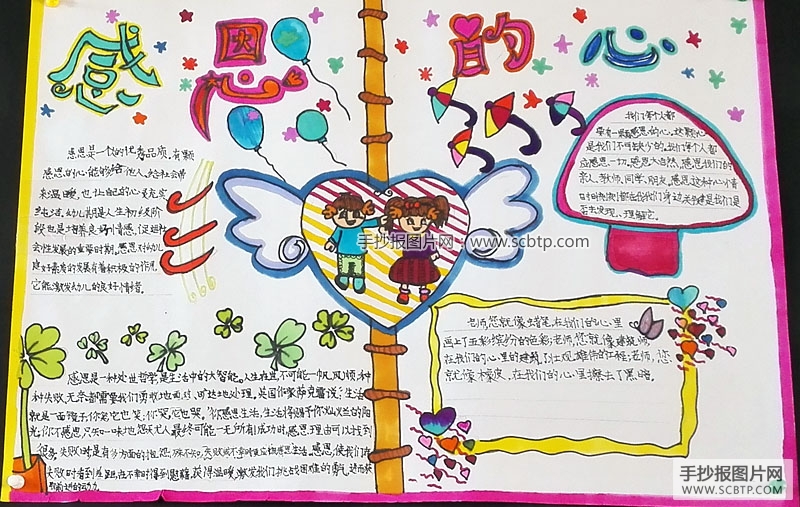 感恩的心
感恩是一仪的优秀品质。有颗
感恩的心能够给他人、给社会带
来温暖,也让自己的心灵充实
与生活。幼儿期是人生初始阶
段也是培养良好情感、促进社
会性发展的重要时期。感恩对幼儿
良好素质的发展有着积极的作用,
它能激发幼儿的良好情绪。
我们每个人都
带有一颗感恩的心。这颗心
是我们不可缺少的。我们每个人都
应感恩一切。感恩大自然、感恩我们的
亲人、教师、同学、朋友。感恩这种心情
时时刻刻都在我们身边关键是我们是
否去发现、理解它。
手抄报图片网:www.scbtp.com
老师,您就像蜡笔,在我们的心里
画上了五彩缤纷的色彩;老师,您就像建筑师,
在我们的心里的建筑,以土观雄伟的工程;老师,您
就像橡皮、在我们的心里擦去了黑暗。
感恩是一种处世哲学,是生活中的大智能。人生在世,不可能一帆风顺,种
种失败、无奈都需要我们勇敢地面对、旷达地处理。英国作家萨克雷说:"生活
就是一面镜子,你笑它也笑;你哭,它也哭。"你感恩生活,生活将赐予你灿烂的阳
光;你不感恩,只知一味地怨天尤人,最终可能一无所有!成功时,感恩理由可以找到
很多;失败时
失败时看到差距,在不幸时得到慰藉、获得温暖,激发我们挑战困难的勇气,进而获
取前进的动力。
手抄报图片网
WWW.SCBTP.COM